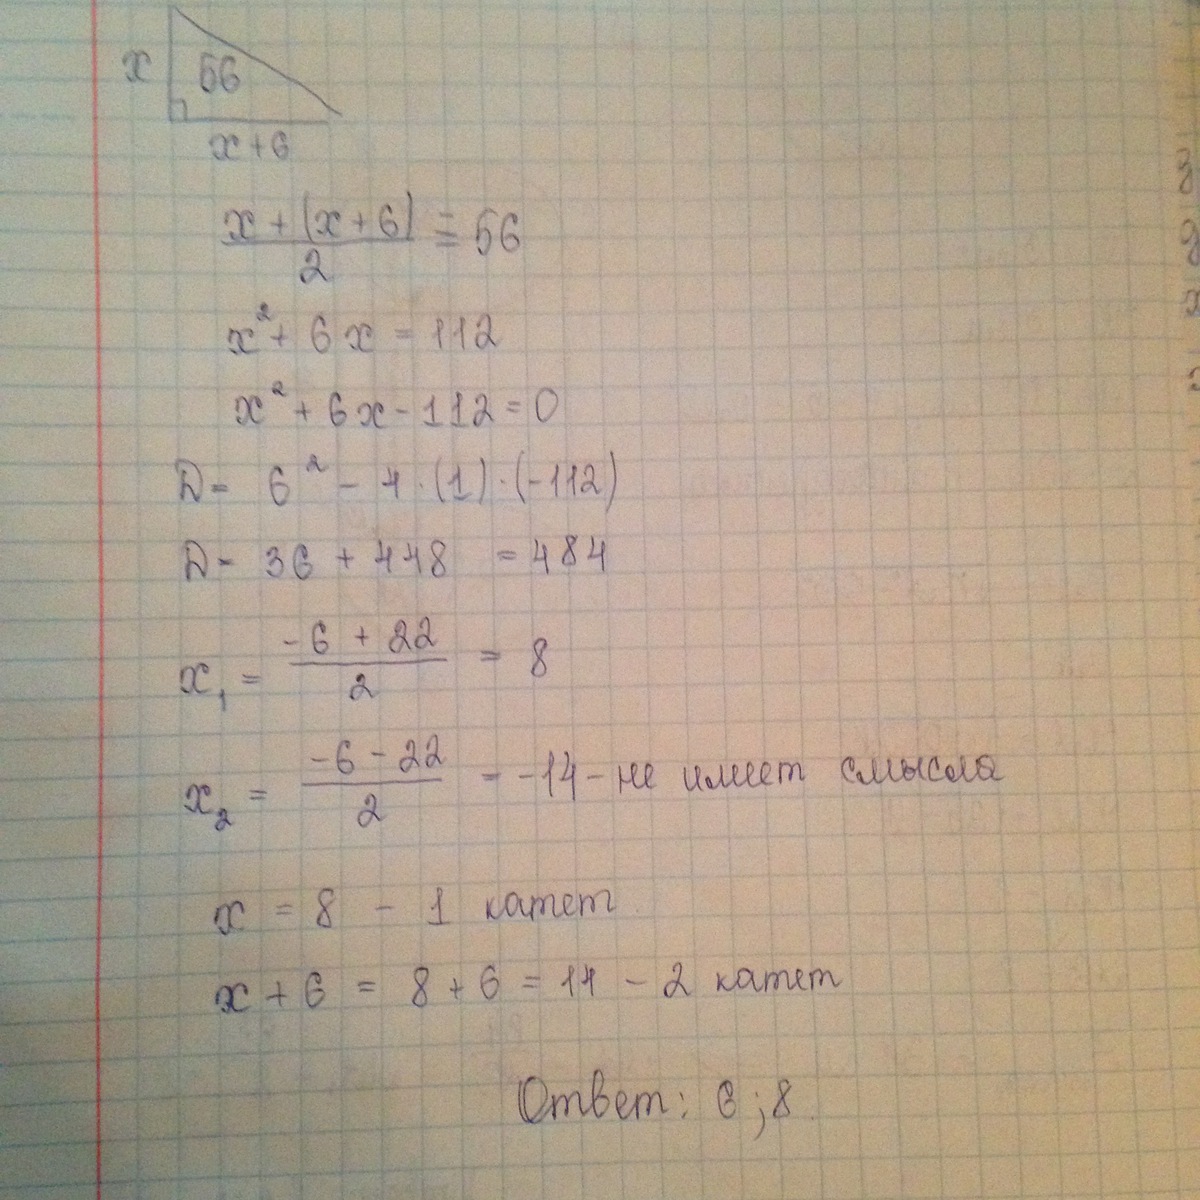 x 56
x + 6
x + (x + 6) / 2 = 56
x² + 6x = 112
x² + 6x - 112 = 0
D = 6² - 4 · (1) · (-112)
D = 36 + 448 = 484
x₁ = (-6 + 22) / 2 = 8
x₂ = (-6 - 22) / 2 = -14 - не имеет смысла
x = 8 - 1 катет
x + 6 = 8 + 6 = 14 - 2 катет
Ответ: 6 ; 8.